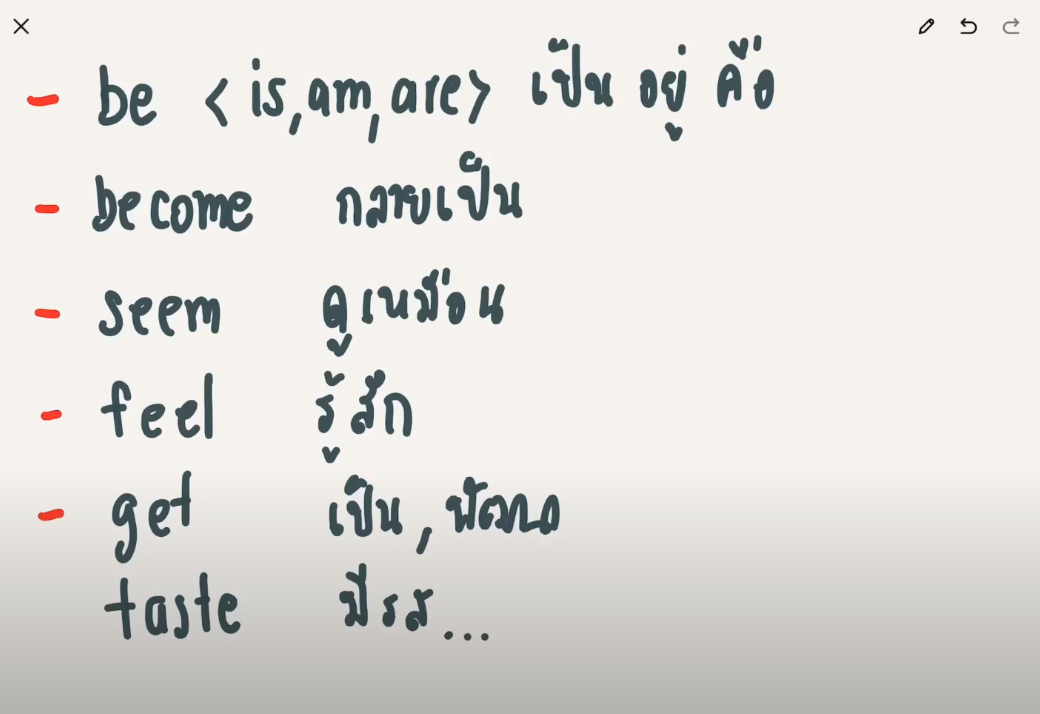 - be <is, am, are> เป็น อยู่ คือ
- become กลายเป็น
- seem ดูเหมือน
- feel รู้สึก
- get เป็น, พัฒนา
taste มีรส...